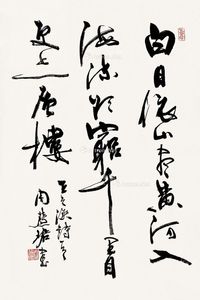 白日依山尽黄河入
海流欲窮千里目
更上一層樓
王之渙詩
周慧珺書